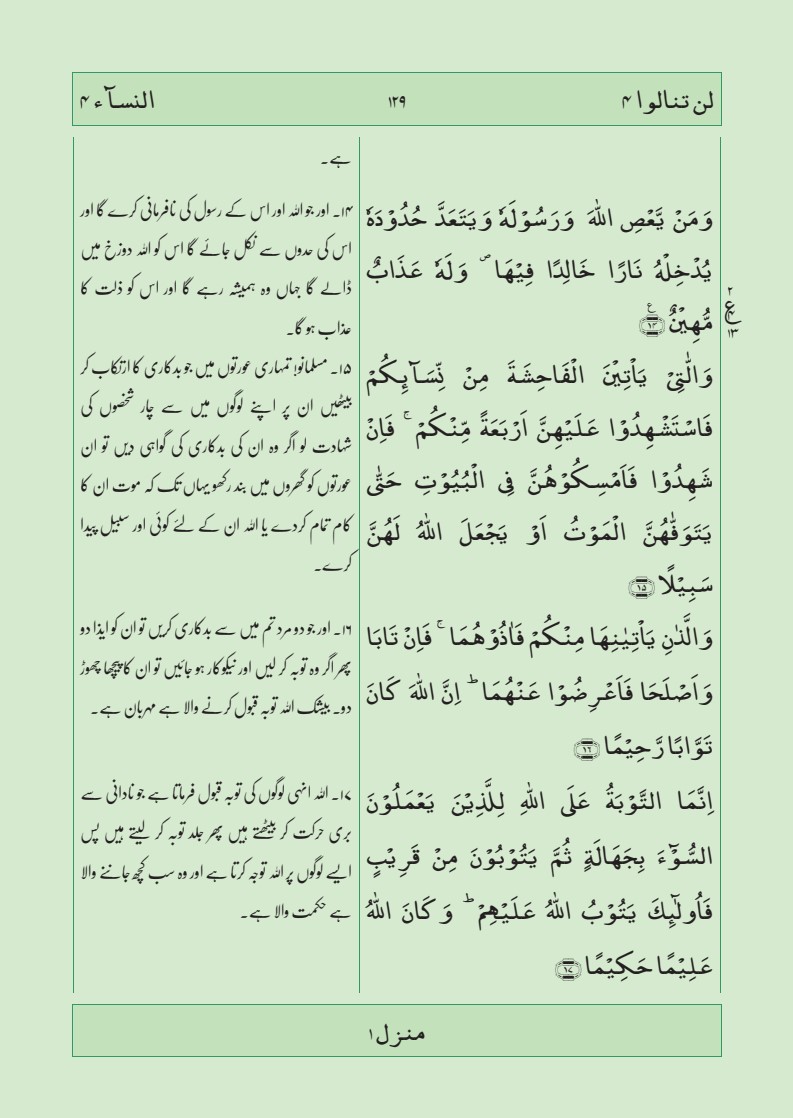 لن تنالوا ۴
۱۲۹
النسآء ۴
وَمَنۡ يَّعۡصِ اللّٰهَ وَرَسُوۡلَهٗ وَيَتَعَدَّ حُدُوۡدَهٗ
يُدۡخِلۡهُ نَارًا خَالِدًا فِيۡهَا ۖ وَلَهٗ عَذَابٌ
مُّهِيۡنٌ ﴿۱۴﴾
۲
ع
۱۳
وَالّٰتِىۡ يَاۡتِيۡنَ الۡفَاحِشَةَ مِنۡ نِّسَآٮِٕكُمۡ
فَاسۡتَشۡهِدُوۡا عَلَيۡهِنَّ اَرۡبَعَةً مِّنۡكُمۡ ۚ فَاِنۡ
شَهِدُوۡا فَاَمۡسِكُوۡهُنَّ فِى الۡبُيُوۡتِ حَتّٰى
يَتَوَفّٰٮهُنَّ الۡمَوۡتُ اَوۡ يَجۡعَلَ اللّٰهُ لَهُنَّ
سَبِيۡلًا ﴿۱۵﴾
وَالَّذٰنِ يَاۡتِيٰنِهَا مِنۡكُمۡ فَاٰذُوۡهُمَا ۚ فَاِنۡ تَابَا
وَاَصۡلَحَا فَاَعۡرِضُوۡا عَنۡهُمَا ؕ اِنَّ اللّٰهَ كَانَ
تَوَّابًا رَّحِيۡمًا ﴿۱۶﴾
اِنَّمَا التَّوۡبَةُ عَلَى اللّٰهِ لِلَّذِيۡنَ يَعۡمَلُوۡنَ
السُّوۡٓءَ بِجَهَالَةٍ ثُمَّ يَتُوۡبُوۡنَ مِنۡ قَرِيۡبٍ
فَاُولٰٓٮِٕكَ يَتُوۡبُ اللّٰهُ عَلَيۡهِمۡ ؕ وَكَانَ اللّٰهُ
عَلِيۡمًا حَكِيۡمًا ﴿۱۷﴾
ہے۔
۱۴۔ اور جو اللہ اور اس کے رسول کی نافرمانی کرے گا اور
اس کی حدوں سے نکل جائے گا اس کو اللہ دوزخ میں
ڈالے گا جہاں وہ ہمیشہ رہے گا اور اس کو ذلت کا
عذاب ہو گا۔
۱۵۔ مسلمانو! تمہاری عورتوں میں جو بدکاری کا ارتکاب کر
بیٹھیں ان پر اپنے لوگوں میں سے چار شخصوں کی
شہادت لو اگر وہ ان کی بدکاری کی گواہی دیں تو ان
عورتوں کو گھروں میں بند رکھو یہاں تک کہ موت ان کا
کام تمام کردے یا اللہ ان کے لئے کوئی اور سبیل پیدا
کرے۔
۱۶۔ اور جو دو مرد تم میں سے بدکاری کریں تو ان کو ایذا دو
پھر اگر وہ توبہ کر لیں اور نیکوکار ہو جائیں تو ان کا پیچھا چھوڑ
دو۔ بیشک اللہ توبہ قبول کرنے والا ہے مہربان ہے۔
۱۷۔ اللہ انہی لوگوں کی توبہ قبول فرماتا ہے جو نادانی سے
بری حرکت کر بیٹھتے ہیں پھر جلد توبہ کر لیتے ہیں پس
ایسے لوگوں پر اللہ توجہ کرتا ہے اور وہ سب کچھ جاننے والا
ہے حکمت والا ہے۔
منزل ۱